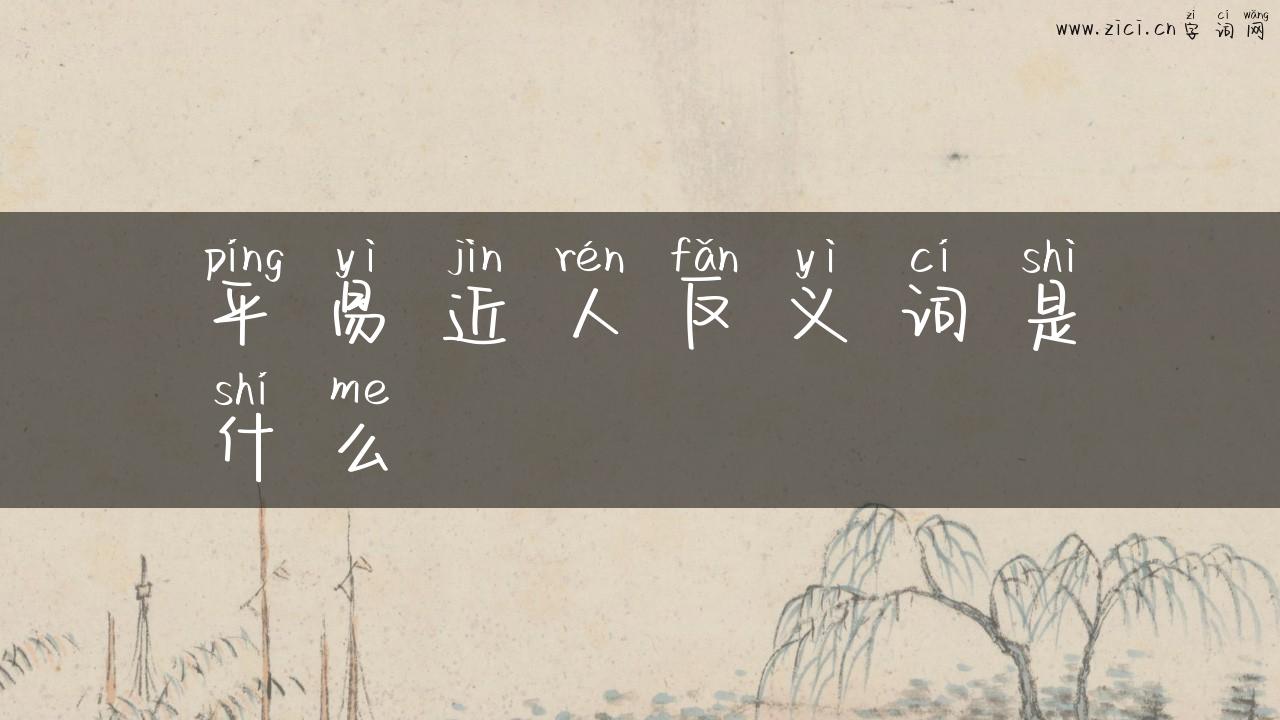 zì cí wǎng
www.zici.cn 字词网
píng yì jìn rén fǎn yì cí shì
平易近人反义词是
shí me
什么